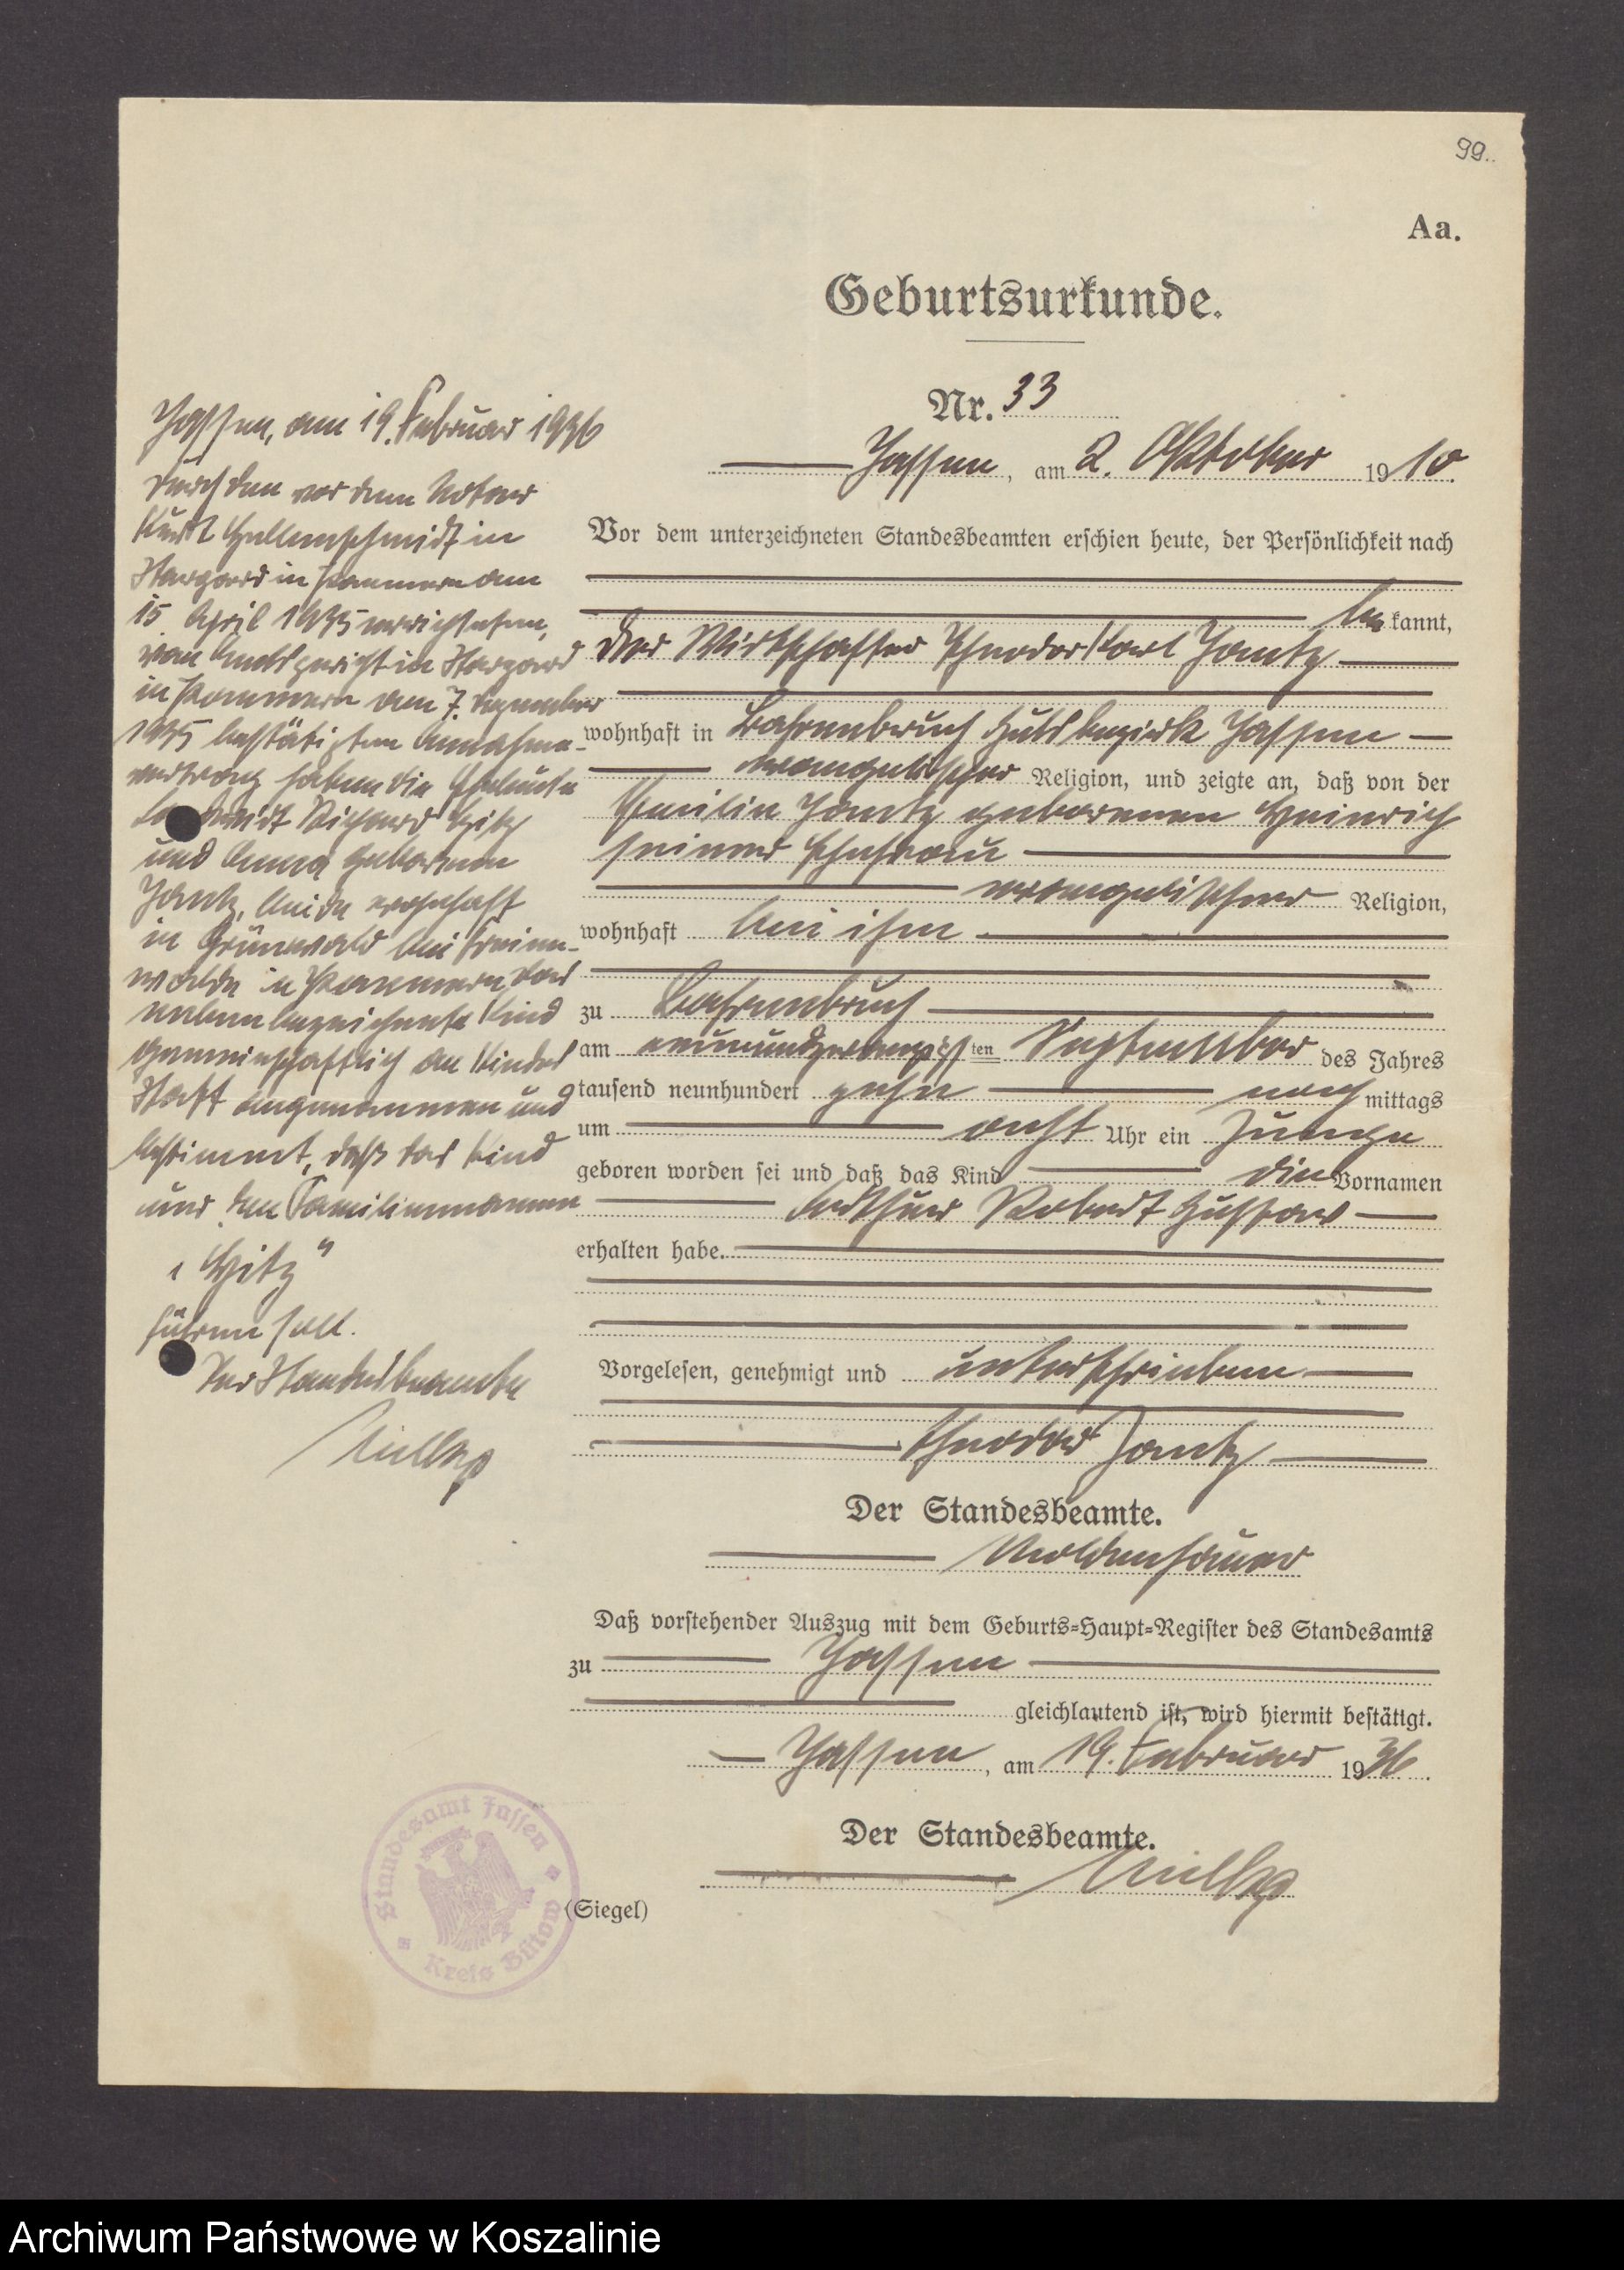 99.
Aa.
Geburtsurkunde.
Nr. 33
Jassen, am 2. Oktober 1910.
Vor dem unterzeichneten Standesbeamten erschien heute, der Persönlichkeit nach
be kannt,
der Wirtschafter Theodor Karl Jantz
wohnhaft in Bahrenbruch Gutsbezirk Jassen
evangelischer Religion, und zeigte an, daß von der
Emilie Jantz geborenen Heinrich
seiner Ehefrau
evangelischer Religion,
wohnhaft bei ihm
zu Bahrenbruch
am neunundzwanzigsten September des Jahres
tausend neunhundert zehn nach mittags
um acht Uhr ein Junge
geboren worden sei und daß das Kind die Vornamen
Arthur Robert Gustav
erhalten habe.
Vorgelesen, genehmigt und unterschrieben
Theodor Jantz
Der Standesbeamte.
Moldenhauer
Daß vorstehender Auszug mit dem Geburts-Haupt-Register des Standesamts
zu Jassen
gleichlautend ist, wird hiermit bestätigt.
Jassen, am 19. Februar 1936.
Der Standesbeamte.
(Siegel)
Standesamt Jassen
Kreis Bütow
Jassen, am 19. Februar 1936
Durch den vor dem Notar
Kurt Hellenschmidt in
Stargard in Pommern am
15 April 1935 errichteten,
vom Amtsgericht in Stargard
in Pommern am 7. Dezember
1935 bestätigten Annahme-
vertrag haben die Eheleute
Richard Hitz
und Anna geborene
Jantz, beide wohnhaft
in Grünwald bei Freien-
walde in Pommern das
nebenbezeichnete Kind
gemeinschaftlich an Kindes
Statt angenommen und
bestimmt, daß das Kind
nur den Familiennamen
„Hitz"
führen soll.
Der Standesbeamte
Archiwum Państwowe w Koszalinie